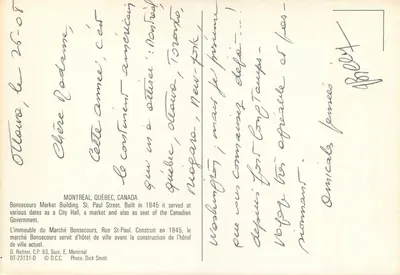 Ottawa, le 26-08
Chère Madame,
Cette année, c'est
le continent américain
qui m'a attirée : Montréal,
Québec, Ottawa, Toronto,
Niagara, New-York,
Washington, mais je présume
que vous connaissez déjà...!
depuis fort longtemps.
Voyage très agréable et pas-
sionnant.
Amicales pensées
MONTRÉAL, QUÉBEC, CANADA
Bonsecours Market Building, St. Paul Street. Built in 1845 it served at
various dates as a City Hall, a market and also as seat of the Canadian
Government.
L'immeuble du Marché Bonsecours, Rue St-Paul. Construit en 1845, le
marché Bonsecours servit d'hôtel de ville avant la construction de l'hôtel
de ville actuel.
D. Richter, C.P. 83, Succ. E. Montréal
DT-23131-D © D.C.C. Photo: Dick Smith